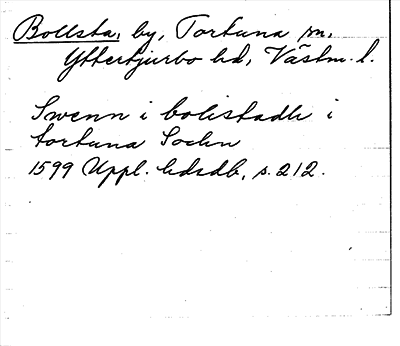 Bollsta, by, Tortuna sn,
Yttertjurbo hd, Västm. l.
Swenn i bolistadh i
tortuna Sochn
1599 Uppl. hdsdb, s. 212.